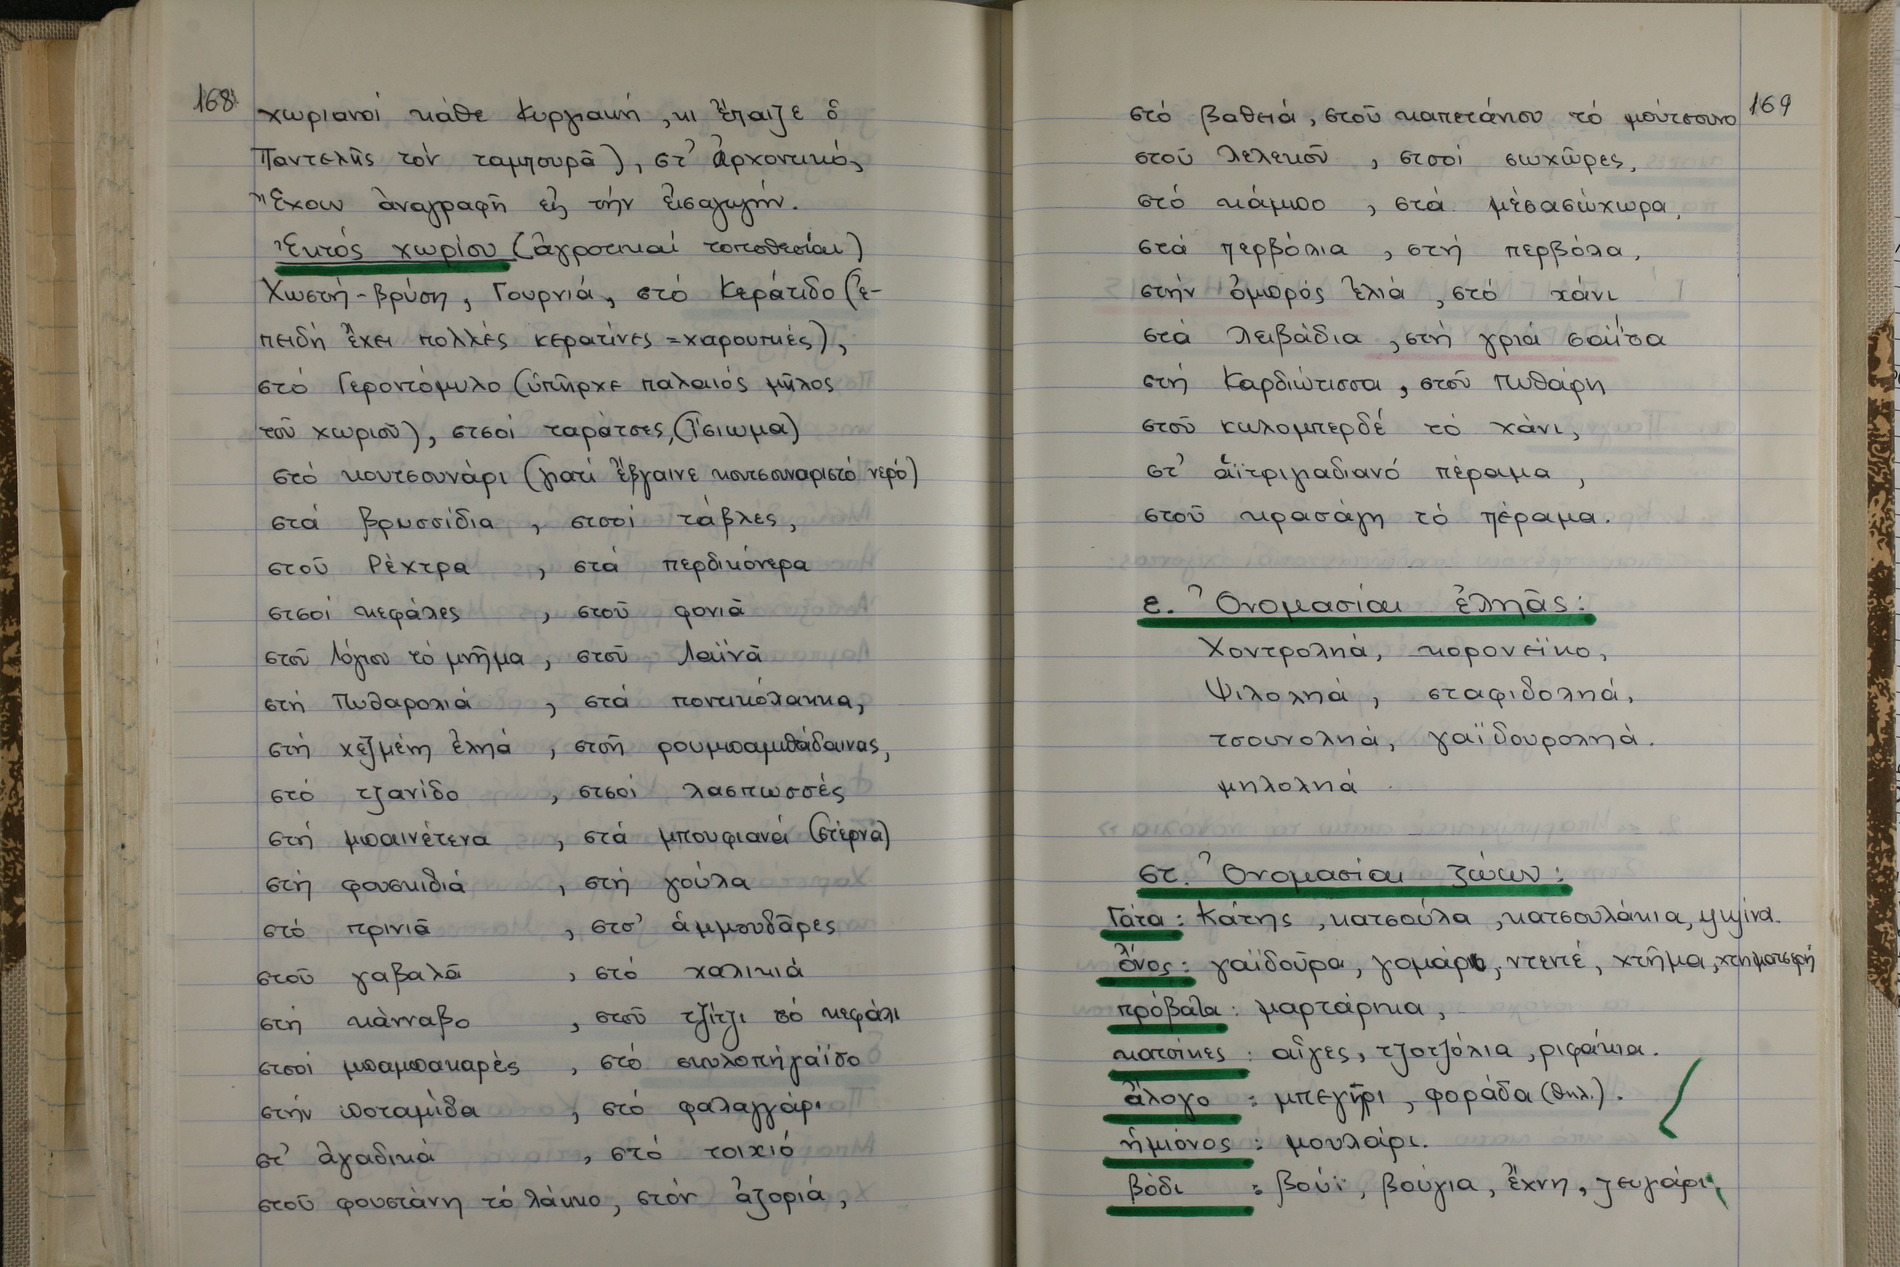 168
χωριανοί κάθε Κυργιακή, κι ἔπαιζε ὁ
Παντελῆς τόν ταμπουρᾶ), στ' ἀρχοντικό,
Ἔχουν ἀναγραφῆ εἰς τήν εἰσαγωγήν.
Ἐκτός χωρίου (ἀγροτικαί τοποθεσίαι)
Χωστή-βρύση, Γουρνιά, στό Κεράτιδο (ἐ-
πειδή ἔχει πολλές κερατίνες = χαρουπιές),
στό Γεροντόμυλο (ὑπῆρχε παλαιός μῆλος
τοῦ χωριοῦ), στσοί ταράτσες, (ἴσιωμα)
στό κουτσουνάρι (γιατί ἔβγαινε κουτσουναριστό νερό)
στά βρυσσίδια, στσοί τάβλες,
στοῦ Ρέχτρα, στά περδικόνερα
στσοί κεφάλες, στοῦ φονιᾶ
στοῦ Λόγιου τό μνῆμα, στοῦ Λαϊνᾶ
στή Πυθαρολιά, στά ποντικόλακκα,
στή χεζμένη ἐληά, στσῆ ρουμπαμπάδαινας,
στό τζανίδο, στσοί λασπωσσές
στή μπαινέτενα, στά μπουφιανά (στέρνα)
στή φουσκιδιά, στή γούλα
στό πρινιᾶ, στσ' ἀμμουδᾶρες
στοῦ γαβαλᾶ, στό χαλικιά
στή κάνναβο, στοῦ τζίτζι τό κεφάλι
στσοί μπαμπακαρές, στό σκυλοπήγαϊδο
στήν ποταμίδα, στό φαλαγγάρι
στ' ἀγαδικά, στό τοιχιό
στοῦ φουστάνη τό λάκκο, στόν ἀζοριά,
169
στό βαθειά, στοῦ καπετάνιου τό μούτσουνο
στοῦ λελεκοῦ, στσοί σωχῶρες,
στό κάμπο, στά μέσασώχωρα,
στά περβόλια, στή περβόλα,
στήν ὀμπρός ἐλιά, στό χάνι
στά λειβάδια, στή γριά σαΐτα
στή Καρδιώτισσα, στοῦ Πυθάρη
στοῦ κωλομπερδέ τό χάνι,
στ' ἀϊτριγιαδιανό πέραμα,
στοῦ κρασάγη τό πέραμα.
ε. Ὀνομασίαι ἐληᾶς:
Χοντροληά, κορονεϊκο,
Ψιλοληά, σταφιδοληά,
τσουνοληά, γαϊδουροληά.
μηλοληά
στ. Ὀνομασίαι ζώων:
Γάτα: Κάτης, κατσούλα, κατσουλάκια, ψιψίνα.
ὄνος: γαϊδοῦρα, γομάρι, ντεντέ, χτῆμα,
πρόβατα: μαρτάρικα,
κατσίκες: αἶγες, τζοτζόλια, ριφάκια.
ἄλογο: μπεγῆρι, φοράδα (θηλ.).
ἡμιόνος: μουλάρι.
βόδι: βούϊ, βούγια, ἔχνη, ζευγάρι,